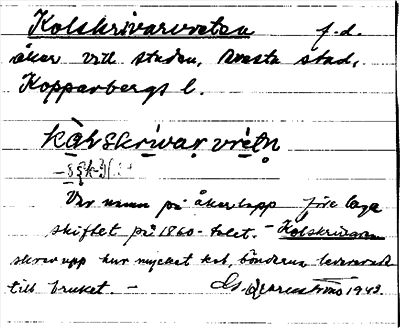 Kolskrivarvreten f.d.
åker vid staden, Avesta stad,
Kopparbergs l.
kå̀l skrivar vrètn
Var namn på åkerlapp före laga
skiftet på 1860-talet. - Kolskrivaren
skrev upp hur mycket kol, bönderna levererade
till bruket. - 1942.